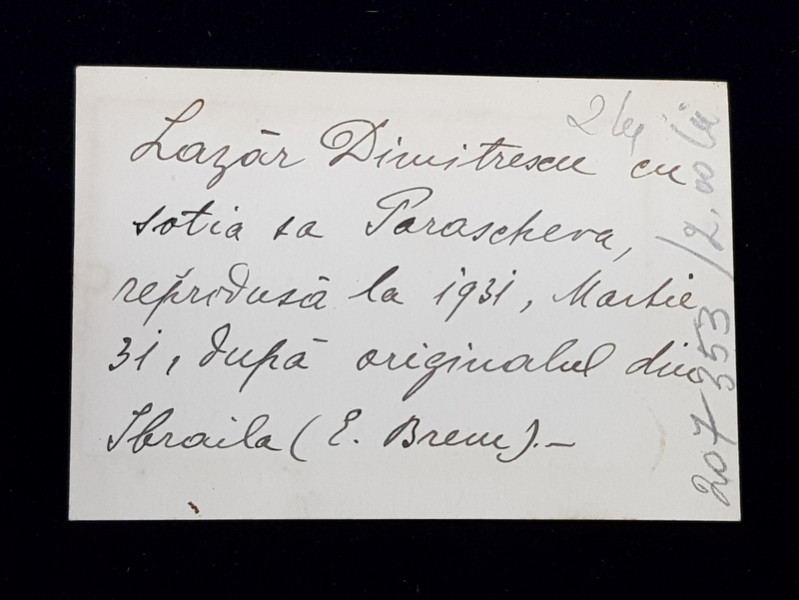 Lazăr Dimitrescu cu
sotia sa Parascheva,
reprodusă la 1931, Martie
31, după originalul din
Ibraila (E. Brem).—
2 lei
207353 /2,00 lei